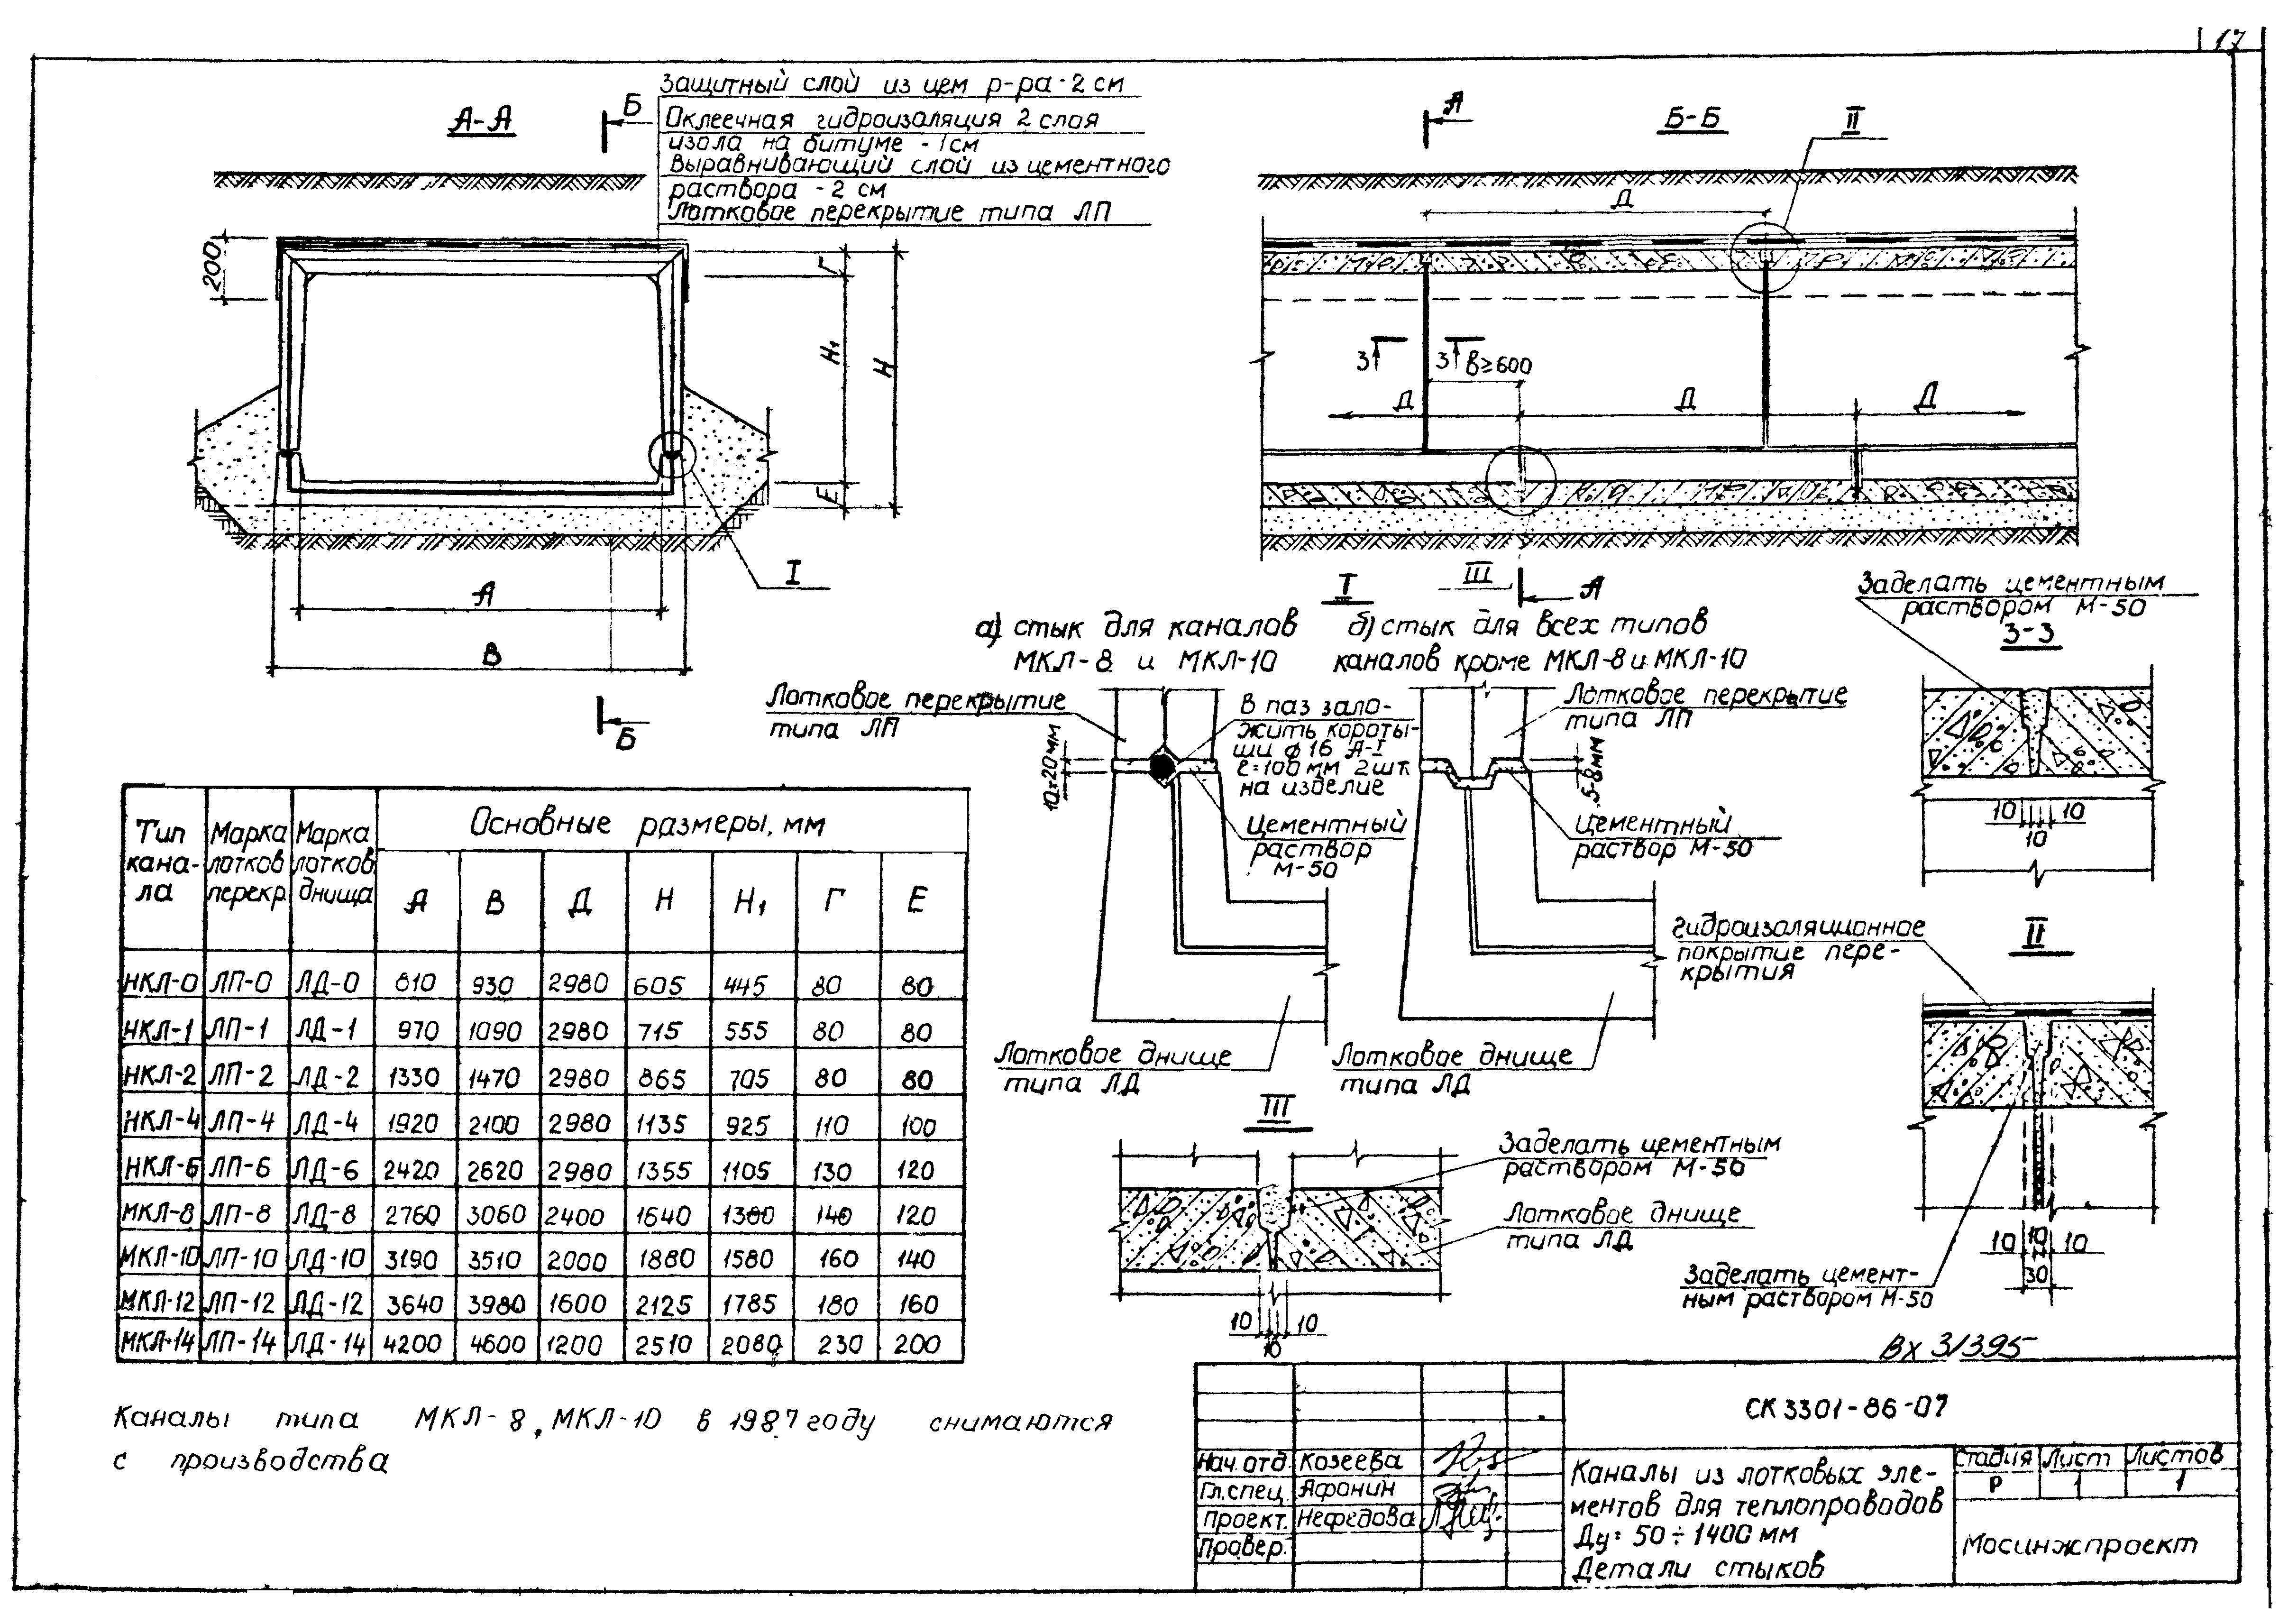 17
А-А
Б
Защитный слой из цем р-ра - 2 см
Оклеечная гидроизоляция 2 слоя
изола на битуме - 1см
Выравнивающий слой из цементного
раствора - 2 см
Лотковое перекрытие типа ЛП
200
Г
Н₁
Н
Е
I
А
В
Б
А
Б-Б
II
Д
3
3
в≥600
Д
Д
Д
III
А
I
а) стык для каналов
МКЛ-8 и МКЛ-10
б) стык для всех типов
каналов кроме МКЛ-8 и МКЛ-10
Лотковое перекрытие
типа ЛП
10÷20мм
В паз зало-
жить короты-
ши ϕ16 А-I
ℓ=100мм 2шт.
на изделие
Цементный
раствор
М-50
Лотковое днище
типа ЛД
Лотковое перекрытие
типа ЛП
5-8мм
Цементный
раствор М-50
Лотковое днище
типа ЛД
Заделать цементным
раствором М-50
3-3
10
10
10
Гидроизоляционное
покрытие пере-
крытия
II
10 10 10
30
Заделать цемент-
ным раствором М-50
III
Заделать цементным
раствором М-50
Лотковое днище
типа ЛД
10
10
10
Тип кана-ла | Марка лотков перекр. | Марка лотков днища | Основные размеры, мм
А | В | Д | Н | Н₁ | Г | Е
НКЛ-0 | ЛП-0 | ЛД-0 | 810 | 930 | 2980 | 605 | 445 | 80 | 80
НКЛ-1 | ЛП-1 | ЛД-1 | 970 | 1090 | 2980 | 715 | 555 | 80 | 80
НКЛ-2 | ЛП-2 | ЛД-2 | 1330 | 1470 | 2980 | 865 | 705 | 80 | 80
НКЛ-4 | ЛП-4 | ЛД-4 | 1920 | 2100 | 2980 | 1135 | 925 | 110 | 100
НКЛ-6 | ЛП-6 | ЛД-6 | 2420 | 2620 | 2980 | 1355 | 1105 | 130 | 120
МКЛ-8 | ЛП-8 | ЛД-8 | 2760 | 3060 | 2400 | 1640 | 1380 | 140 | 120
МКЛ-10 | ЛП-10 | ЛД-10 | 3190 | 3510 | 2000 | 1880 | 1580 | 160 | 140
МКЛ-12 | ЛП-12 | ЛД-12 | 3640 | 3980 | 1600 | 2125 | 1785 | 180 | 160
МКЛ-14 | ЛП-14 | ЛД-14 | 4200 | 4600 | 1200 | 2510 | 2080 | 230 | 200
Каналы типа МКЛ-8, МКЛ-10 в 1987 году снимаются
с производства
Вх 31395
СК 3301-86-07
Нач. отд Козеева
Гл. спец Афонин
Проект. Нефедова
Провер.
Каналы из лотковых эле-
ментов для теплопроводов
Ду= 50÷1400 мм
Детали стыков
Стадия Лист Листов
Р 1 1
Мосинжпроект